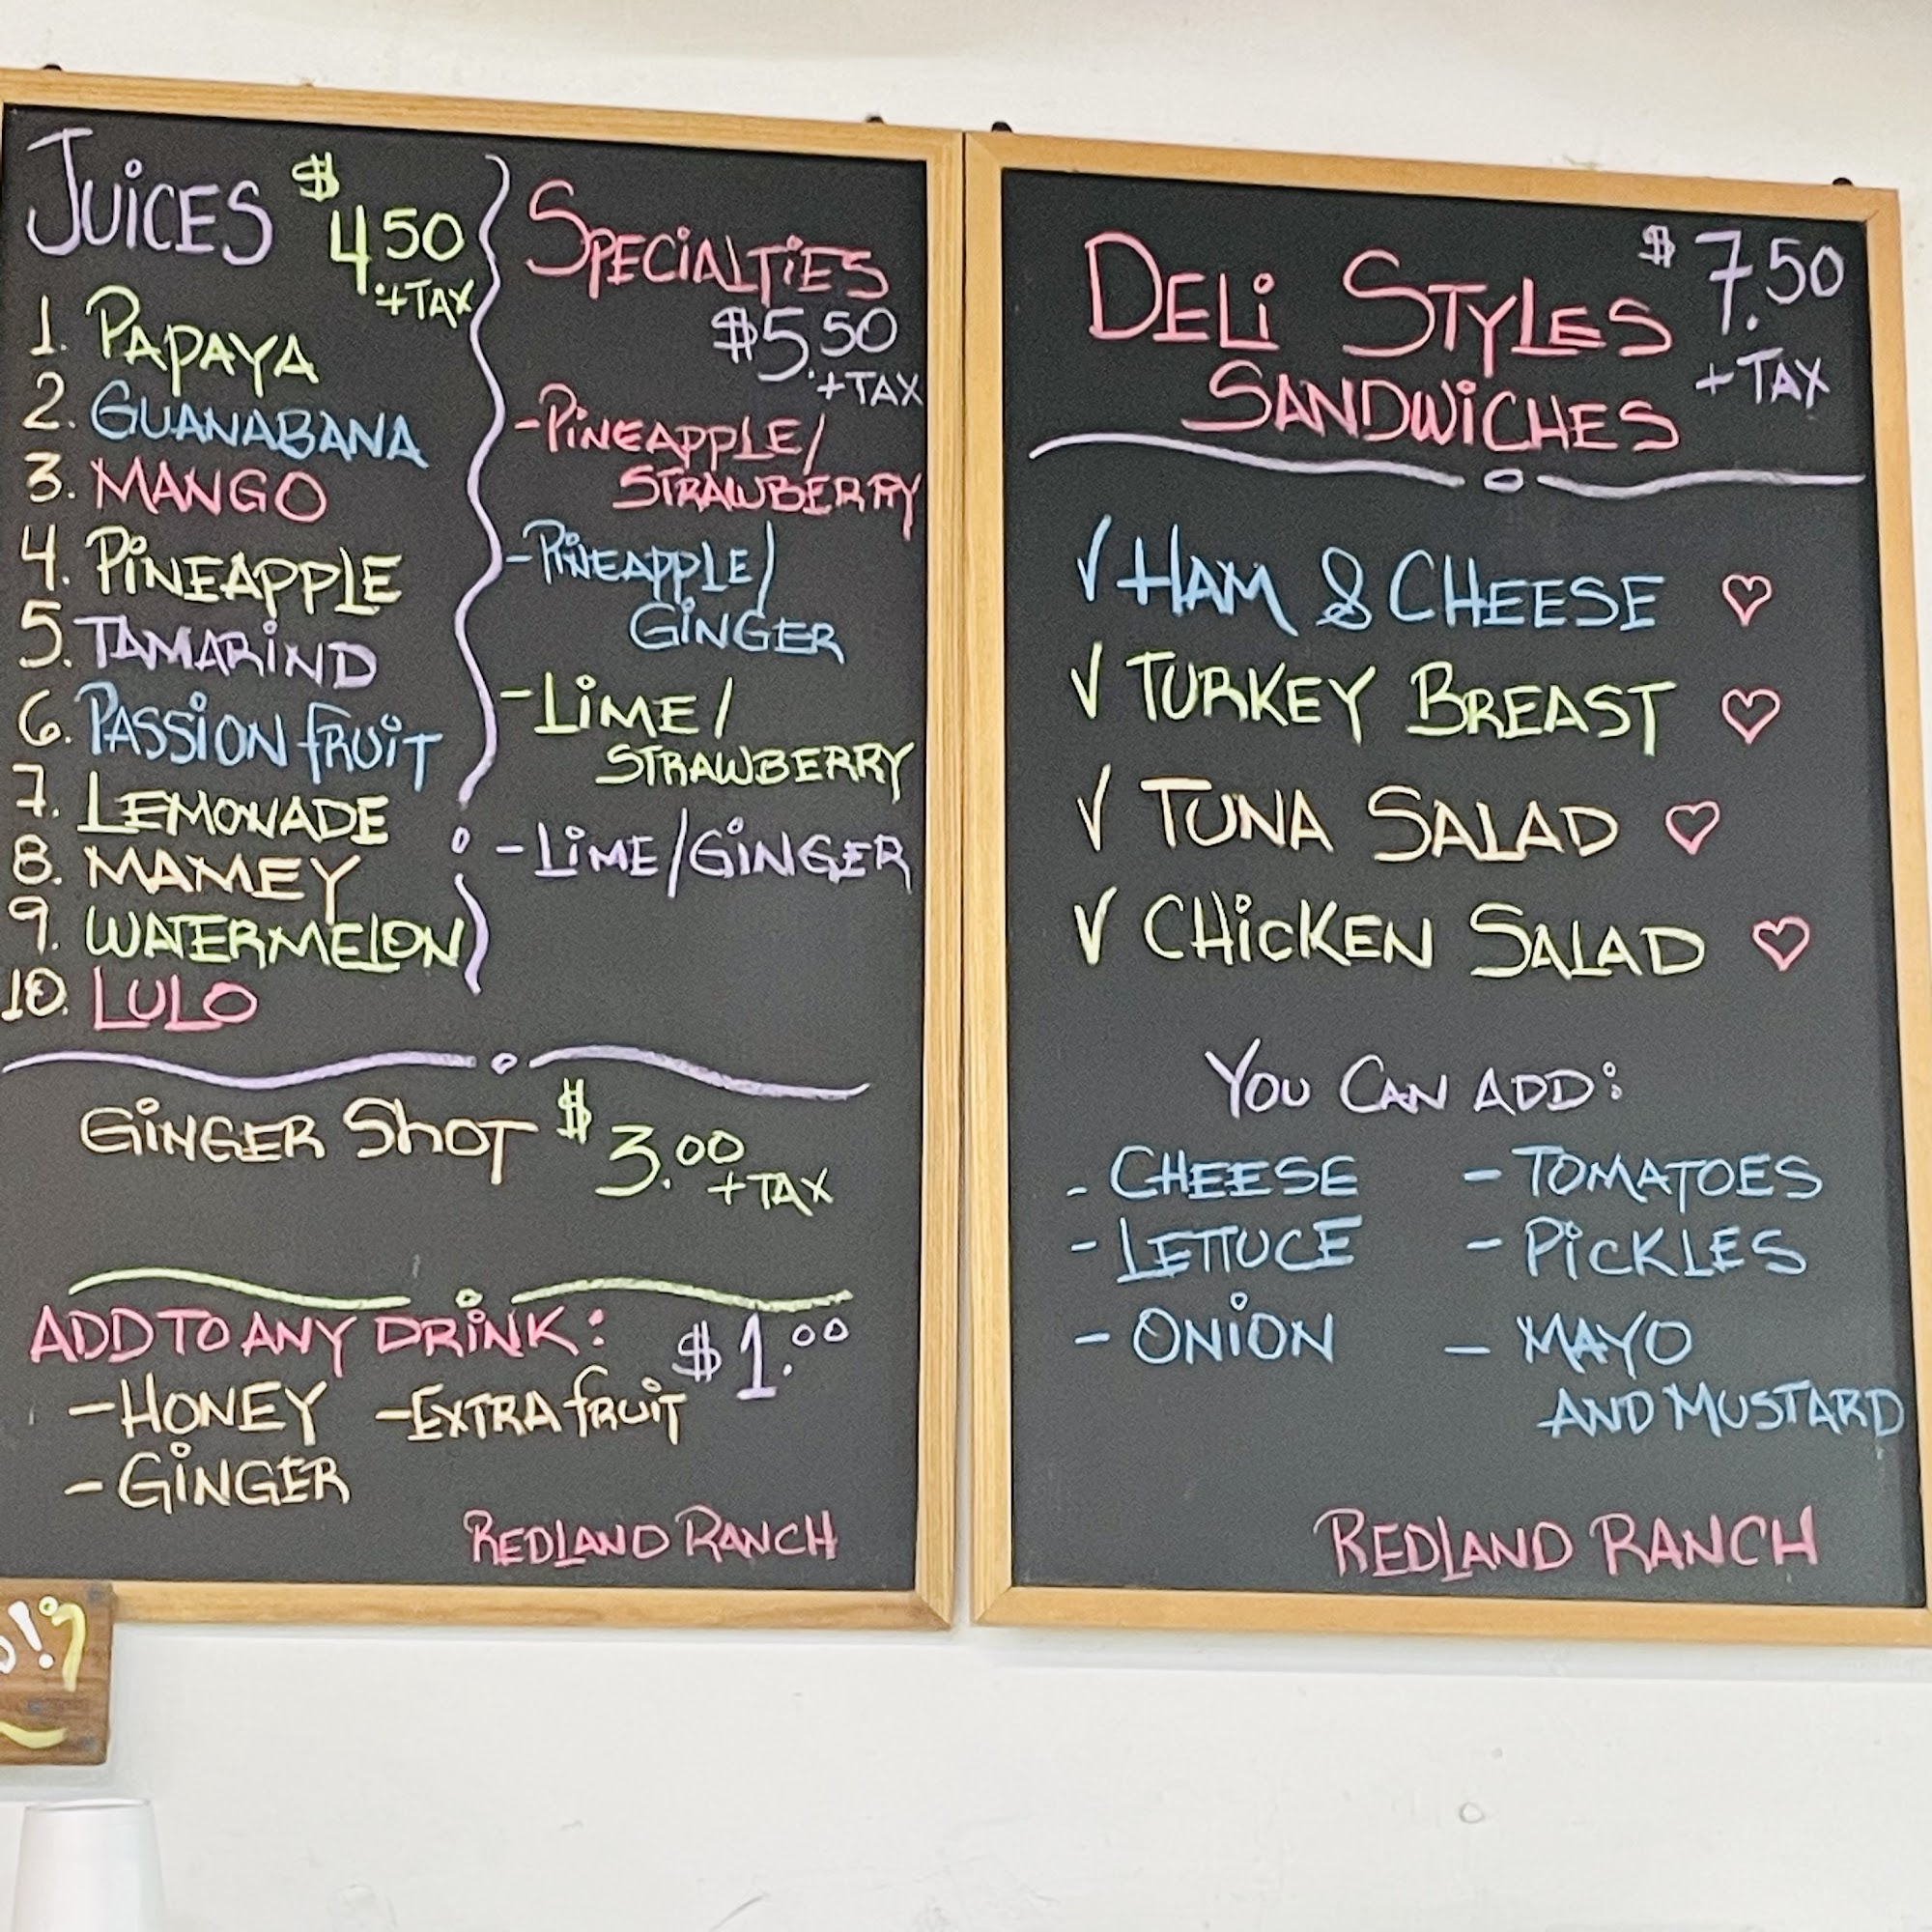 JUICES $4.50
+TAX
1. PAPAYA
2. GUANABANA
3. MANGO
4. PINEAPPLE
5. TAMARIND
6. PASSION FRUIT
7. LEMONADE
8. MAMEY
9. WATERMELON
10. LULO
SPECIALTIES
$5.50
+TAX
-PINEAPPLE/
STRAWBERRY
-PINEAPPLE/
GINGER
-LIME/
STRAWBERRY
-LIME/GINGER
GINGER SHOT $3.00
+TAX
ADD TO ANY DRINK: $1.00
-HONEY -EXTRA FRUIT
-GINGER
REDLAND RANCH
DELI STYLES $7.50
+TAX
SANDWICHES
√ HAM & CHEESE ♡
√ TURKEY BREAST ♡
√ TUNA SALAD ♡
√ CHICKEN SALAD ♡
YOU CAN ADD:
- CHEESE - TOMATOES
- LETTUCE - PICKLES
- ONION - MAYO
AND MUSTARD
REDLAND RANCH